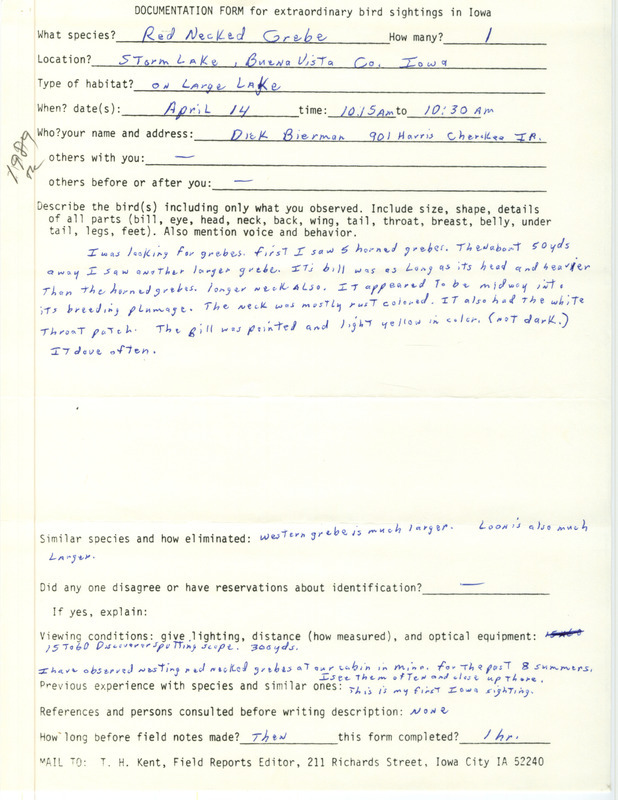 DOCUMENTATION FORM for extraordinary bird sightings in Iowa
What species? Red Necked Grebe How many? 1
Location? Storm Lake, Buena Vista Co. Iowa
Type of habitat? on Large Lake
When? date(s): April 14 time: 10:15 Am to 10:30 Am
Who? your name and address: Dick Bierman 901 Harris Cherokee IA.
1989
others with you: —
others before or after you: —
Describe the bird(s) including only what you observed. Include size, shape, details
of all parts (bill, eye, head, neck, back, wing, tail, throat, breast, belly, under
tail, legs, feet). Also mention voice and behavior.
I was looking for grebes. first I saw 5 horned grebes. Then about 50 yds
away I saw another larger grebe. Its bill was as long as its head and heavier
Than the horned grebes. longer neck Also. It appeared to be midway into
its breeding plumage. The neck was mostly rust colored. It also had the white
throat patch. The Bill was pointed and light yellow in color. (not dark.)
It dove often.
Similar species and how eliminated: western grebe is much larger. Loon is also much
Larger.
Did any one disagree or have reservations about identification? —
If yes, explain:
Viewing conditions: give lighting, distance (how measured), and optical equipment:
15 to 60 Discoverer spotting scope. 300 yds.
I have observed nesting red necked grebes at our cabin in Minn. for the past 8 summers.
I see them often and close up there.
Previous experience with species and similar ones: This is my first Iowa sighting.
References and persons consulted before writing description: None
How long before field notes made? Then this form completed? 1 hr.
MAIL TO: T. H. Kent, Field Reports Editor, 211 Richards Street, Iowa City IA 52240